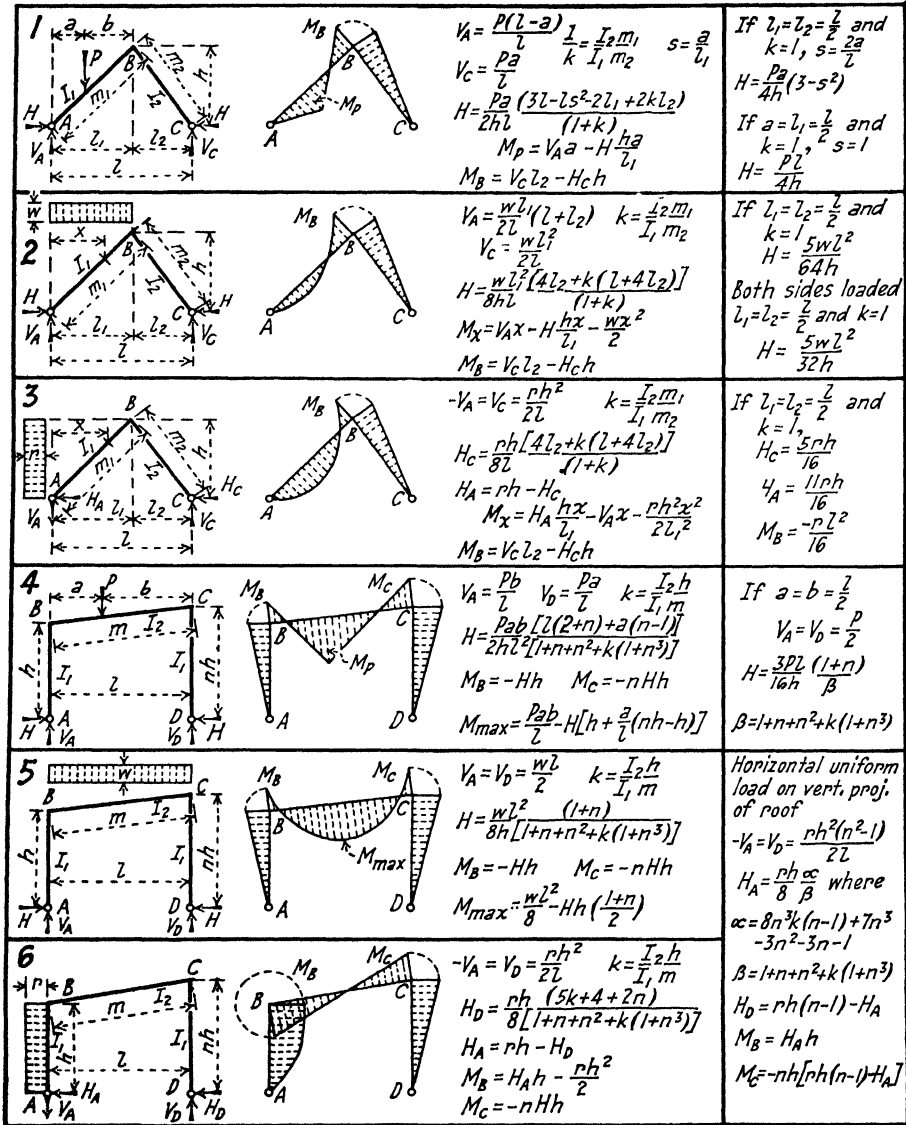 1
a b
P
B
I₁ m₁ I₂ m₂ h
H A C H
V_A l₁ l₂ V_C
l
M_B
B
M_P
A C
V_A = P(l-a)/l 1/k = I₂m₁/I₁m₂ s = a/l₁
V_C = Pa/l
H = Pa/2hl (3l-ls²-2l₁+2kl₂)/(1+k)
M_P = V_A a - H ha/l₁
M_B = V_C l₂ - H_C h
If l₁=l₂=l/2 and
k=1, s=2a/l
H = Pa/4h (3-s²)
If a=l₁=l/2 and
k=1, s=1
H = Pl/4h
w
2
x
B
I₁ m₁ I₂ m₂ h
H A C H
V_A l₁ l₂ V_C
l
M_B
B
A C
V_A = wl₁/2l (l+l₂) k = I₂m₁/I₁m₂
V_C = wl₁²/2l
H = wl₁²/8hl [4l₂+k(l+4l₂)]/(1+k)
M_x = V_A x - H hx/l₁ - wx²/2
M_B = V_C l₂ - H_C h
If l₁=l₂=l/2 and
k=1
H = 5wl²/64h
Both sides loaded
l₁=l₂=l/2 and k=1
H = 5wl²/32h
3
B
x
r I₁ m₁ I₂ m₂ h
A H_A C H_C
V_A l₁ l₂ V_C
l
M_B
B
A C
-V_A = V_C = rh²/2l k = I₂m₁/I₁m₂
H_C = rh/8l [4l₂+k(l+4l₂)]/(1+k)
H_A = rh - H_C
M_x = H_A hx/l₁ - V_A x - rh²x²/2l₁²
M_B = V_C l₂ - H_C h
If l₁=l₂=l/2 and
k=1,
H_C = 5rh/16
4_A = 11rh/16
M_B = -rl²/16
4
a P b
B C
m I₂
h I₁ l I₁ nh
H A D H
V_A V_D
M_B M_C
B C
M_P
A D
V_A = Pb/l V_D = Pa/l k = I₂h/I₁m
H = Pab/2hl² [l(2+n)+a(n-1)]/[1+n+n²+k(1+n³)]
M_B = -Hh M_C = -nHh
M_max = Pab/l - H[h + a/l (nh-h)]
If a=b=l/2
V_A = V_D = P/2
H = 3Pl/16h (1+n)/β
β = 1+n+n²+k(1+n³)
5
w
B C
m I₂
h I₁ l I₁ nh
H A D H
V_A V_D
M_B M_C
B C
M_max
A D
V_A = V_D = wl/2 k = I₂h/I₁m
H = wl²/8h (1+n)/[1+n+n²+k(1+n³)]
M_B = -Hh M_C = -nHh
M_max = wl²/8 - Hh(1+n/2)
Horizontal uniform
load on vert. proj.
of roof
-V_A = V_D = rh²(n²-1)/2l
H_A = rh/8 α/β where
α = 8n³k(n-1)+7n³
-3n²-3n-1
β = 1+n+n²+k(1+n³)
H_D = rh(n-1) - H_A
M_B = H_A h
M_C = -nh[rh(n-1)-H_A]
6
r B C
m I₂
I₁ h l I₁ nh
A H_A D H_D
V_A V_D
M_B M_C
B C
A D
-V_A = V_D = rh²/2l k = I₂h/I₁m
H_D = rh/8 (5k+4+2n)/[1+n+n²+k(1+n³)]
H_A = rh - H_D
M_B = H_A h - rh²/2
M_C = -nHh